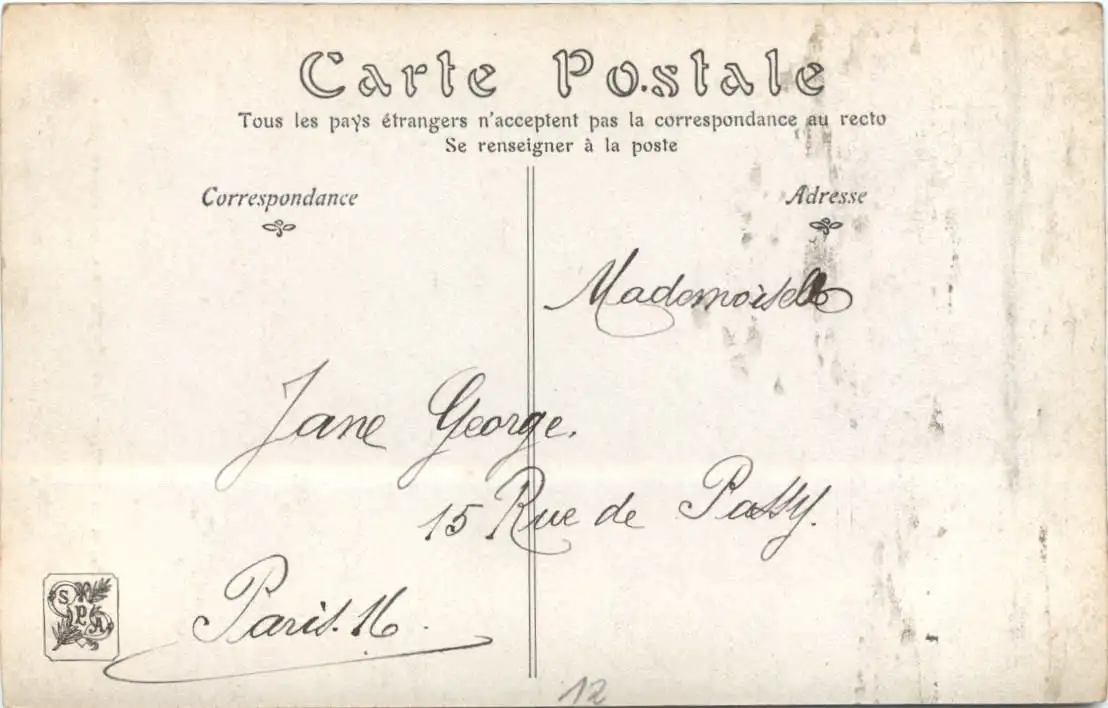 Carte Postale
Tous les pays étrangers n'acceptent pas la correspondance au recto
Se renseigner à la poste
Correspondance
Adresse
Mademoiselle
Jane George.
15 Rue de Passy.
Paris. 16.
S P A
12